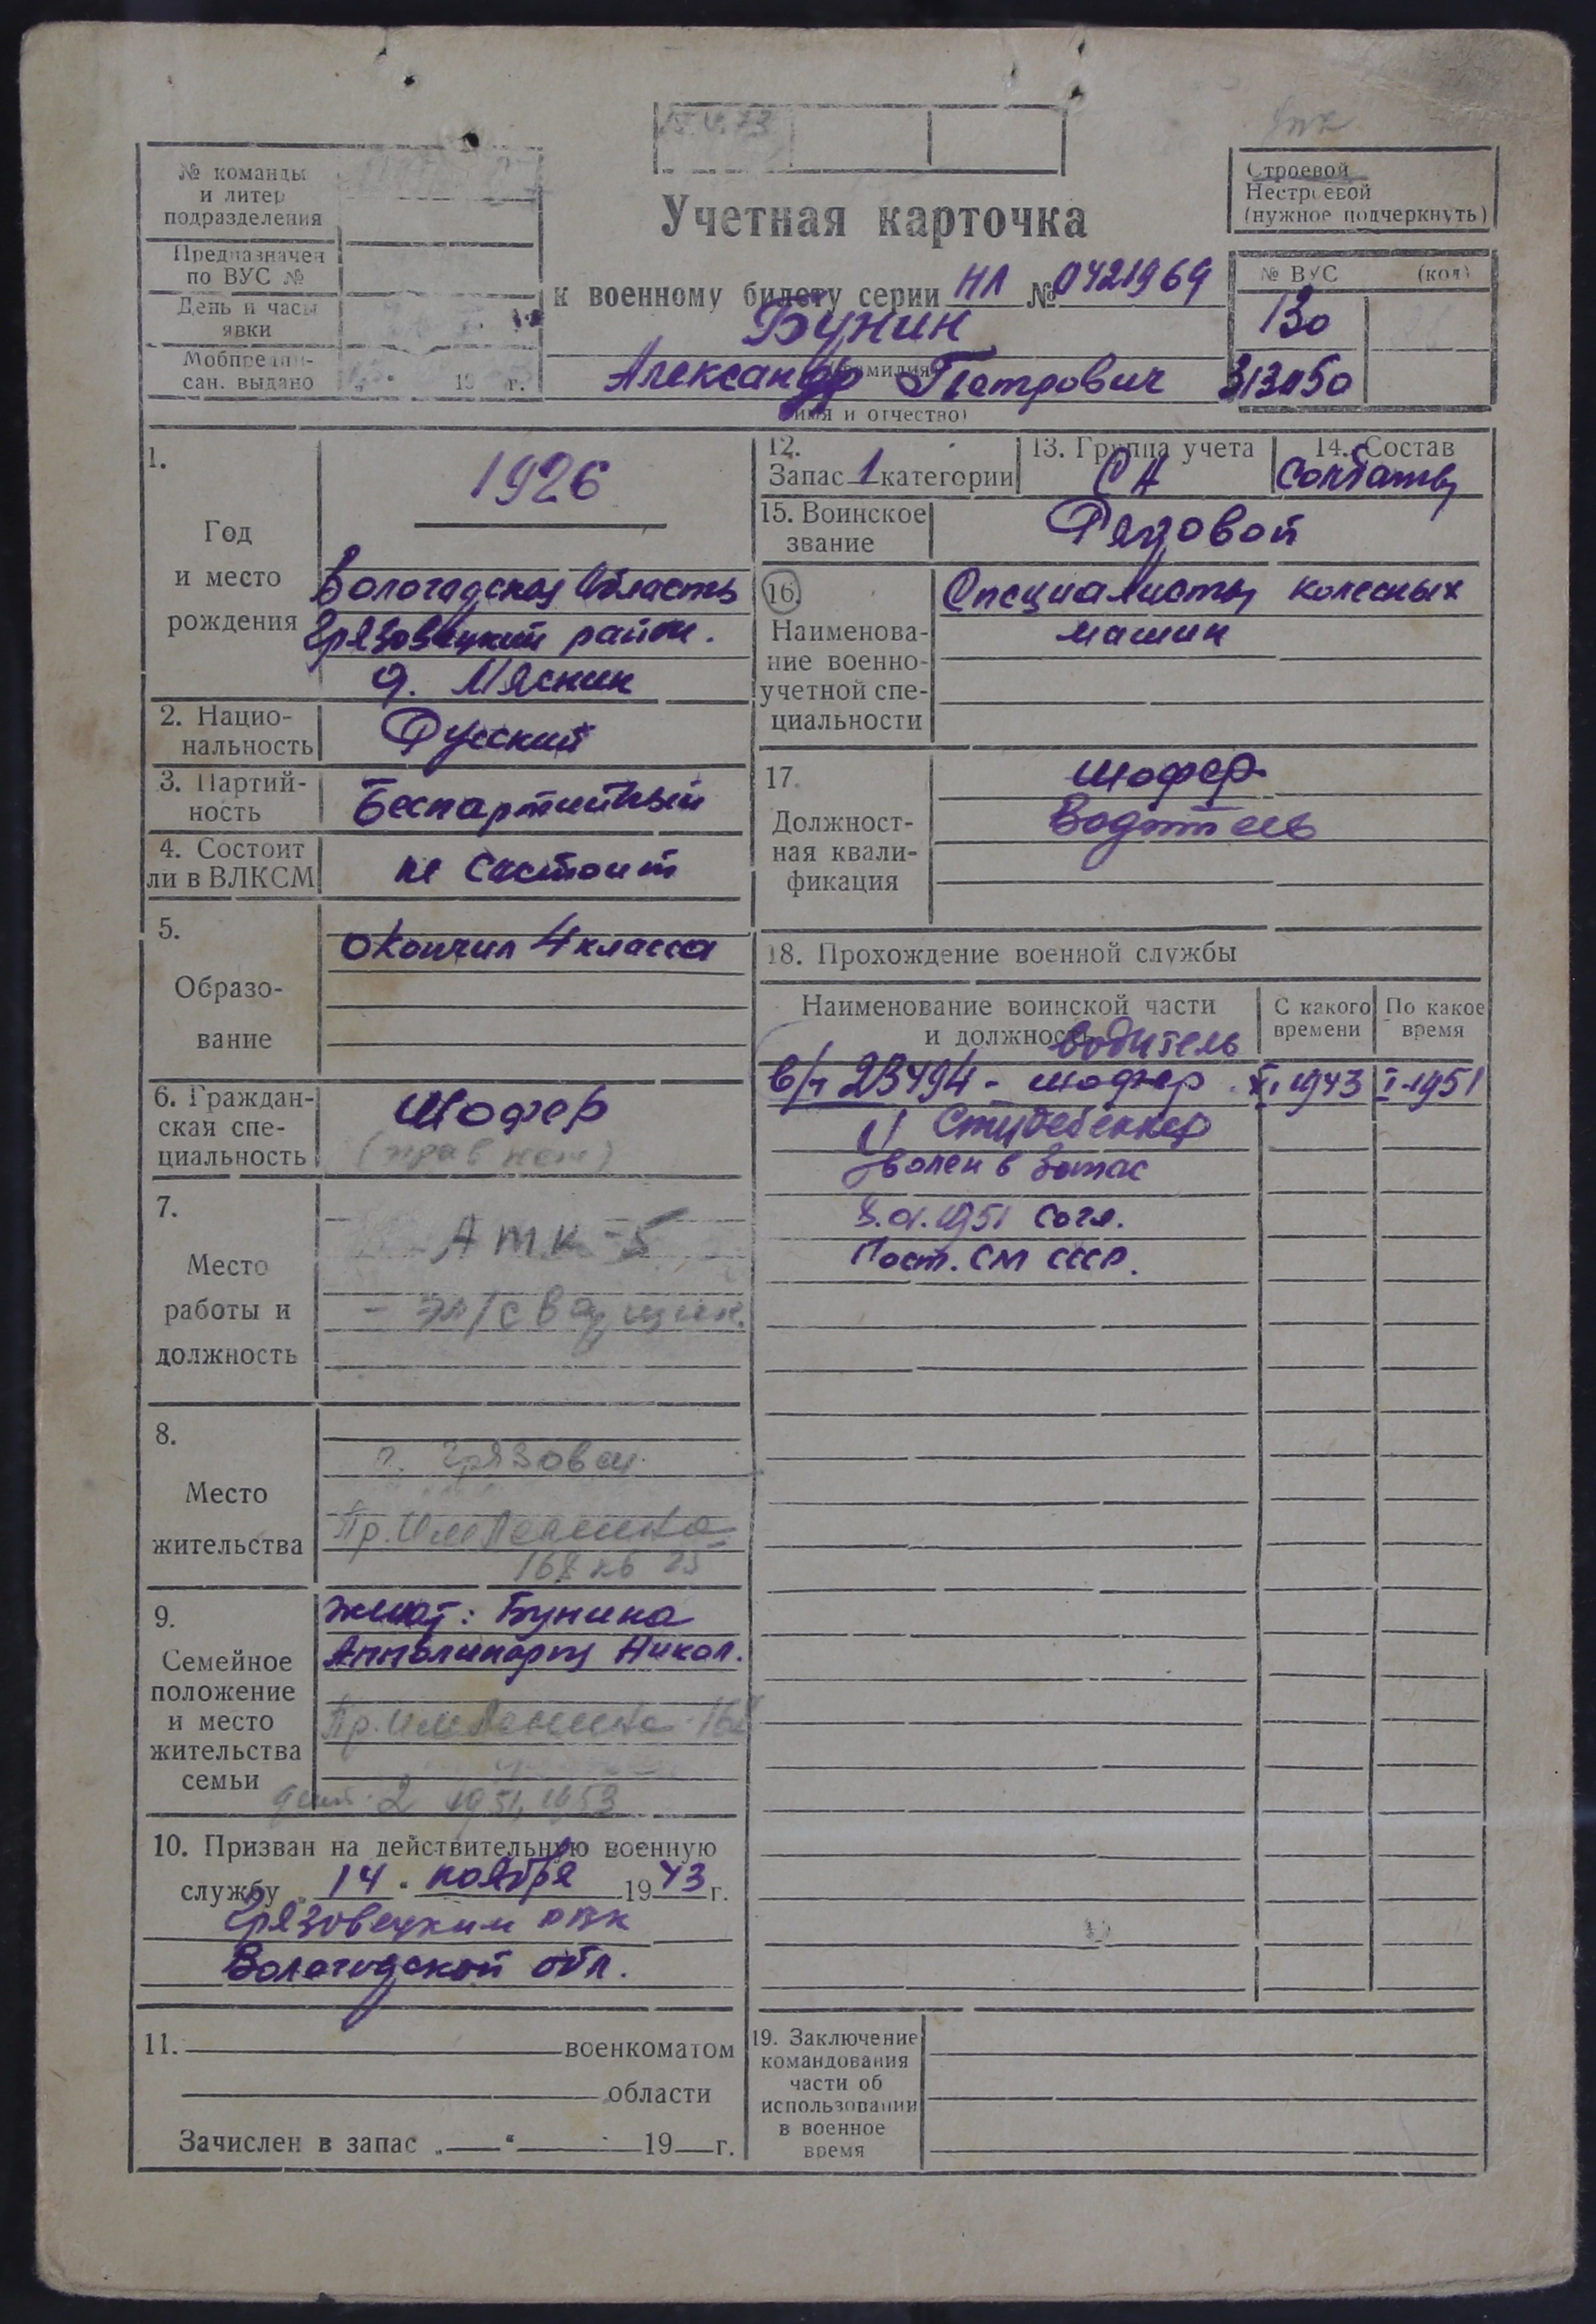 15.V.73
№ команды
и литер
подразделения
Предназначен
по ВУС №
День и часы
явки
Мобпредпи-
сан. выдано „ “ 19 г.
Учетная карточка
к военному билету серии НЛ № 0421969
Бунин
(фамилия)
Александр Петрович
(имя и отчество)
Строевой
Нестроевой
(нужное подчеркнуть)
№ ВУС (код)
130
313150
1.
Год
и место
рождения
1926
Вологодская область
Грязовецкий район.
д. Мяснин
2. Нацио-
нальность
Русский
3. Партий-
ность
Беспартийный
4. Состоит
ли в ВЛКСМ
не состоит
5.
Образо-
вание
окончил 4 класса
6. Граждан-
ская спе-
циальность
Шофер
(прав нет)
7.
Место
работы и
должность
АТК-5
- эл/сварщик.
8.
Место
жительства
г. Грязовец
Пр. Им Ленина
168 кв 25
9.
Семейное
положение
и место
жительства
семьи
женат: Бунина
Апполинария Никол.
Пр. Им Ленина 168
дет. 2 1951, 1953
10. Призван на действительную военную
службу „ 14 “ ноября 1943 г.
Грязовецким РВК
Вологодской обл.
11. военкоматом
области
Зачислен в запас „ “ 19 г.
12.
Запас 1 категории
13. Группа учета
СА
14. Состав
Солдаты
15. Воинское
звание
Рядовой
16.
Наименова-
ние военно-
учетной спе-
циальности
Специалисты колесных
машин
17.
Должност-
ная квали-
фикация
шофер
Водитель
18. Прохождение военной службы
Наименование воинской части
и должность
С какого
времени
По какое
время
водитель
в/ч 23494 - шофер XI 1943 I-1951
Студебеккер
Уволен в Запас
8.01.1951 согл.
Пост. СМ СССР.
19. Заключение
командования
части об
использовании
в военное
время